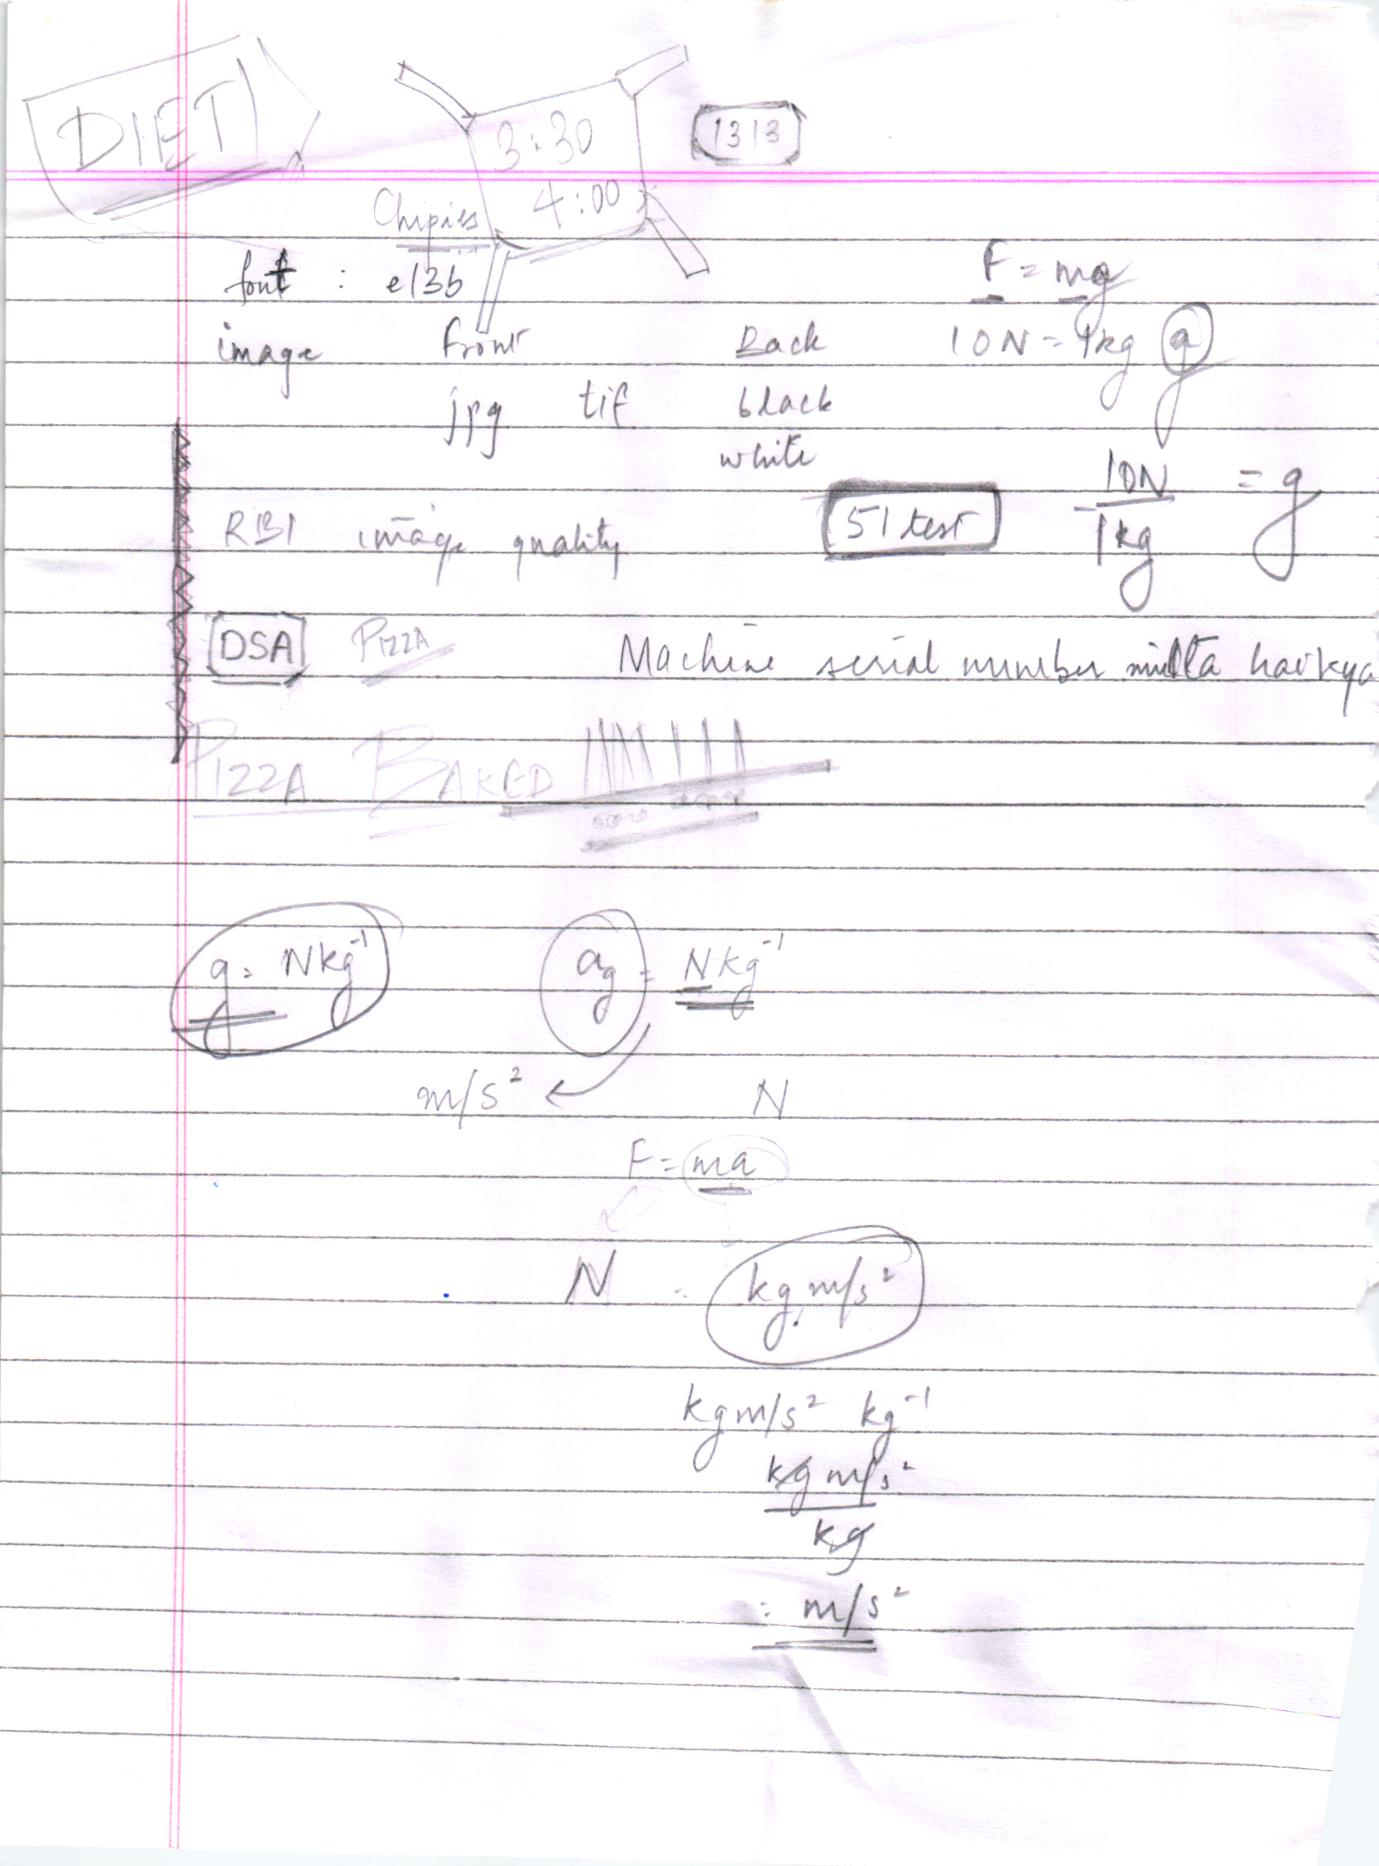 DIET
3:30
4:00
1313
Chipies
font : e13b
F = mg
image front Back
10N = 1kg g
jpg tif black
white
10N = g
1kg
RBI image quality
51 test
DSA PIZZA Machine serial number milta hai kya
PIZZA BAKED
g = Nkg⁻¹ ag = Nkg⁻¹
m/s² N
F = ma
N = kg m/s²
kgm/s² kg⁻¹
kg m/s²
kg
= m/s²